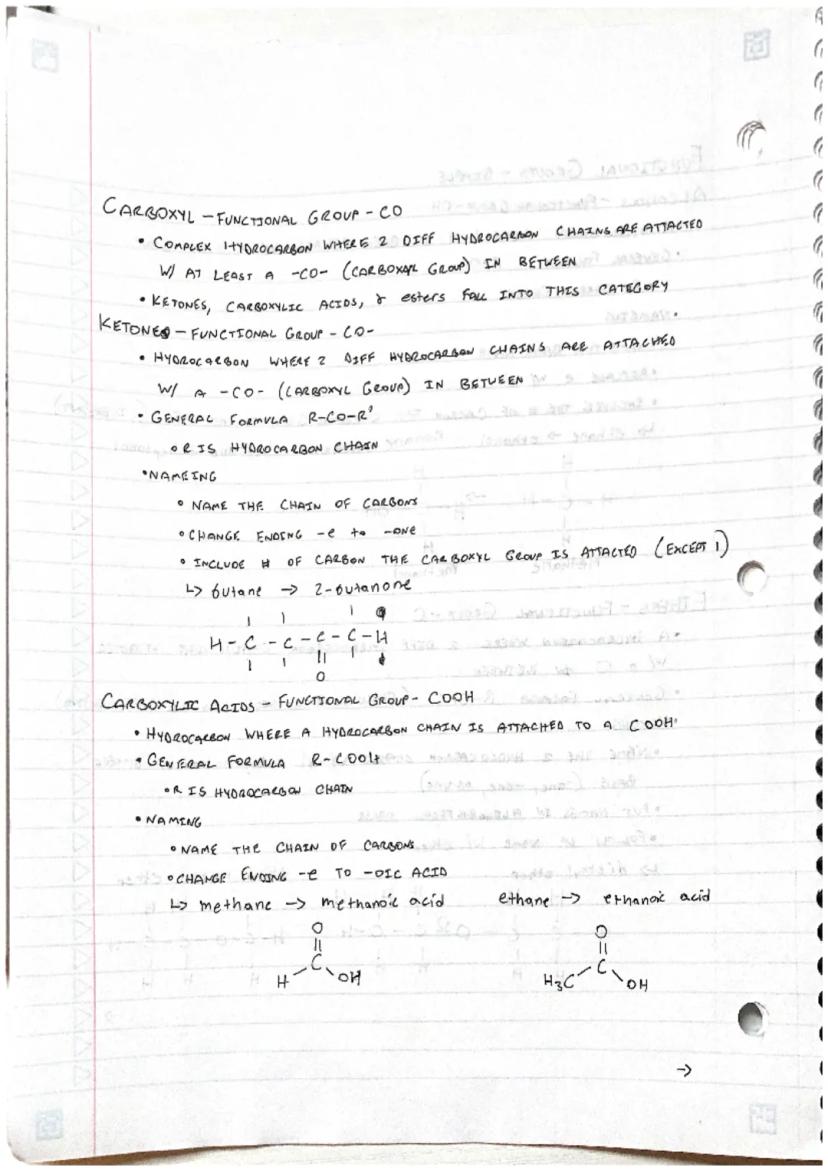 CARBOXYL – FUNCTIONAL GROUP – CO
• COMPLEX HYDROCARBON WHERE 2 DIFF HYDROCARBON CHAINS ARE ATTACTED
W/ AT LEAST A -CO- (CARBOXYL GROUP) IN BETWEEN
• KETONES, CARBOXYLIC ACIDS, & esters FALL INTO THIS CATEGORY
KETONES – FUNCTIONAL GROUP – CO-
• HYDROCARBON WHERE 2 DIFF HYDROCARBON CHAINS ARE ATTACHED
W/ A -CO- (CARBOXYL GROUP) IN BETWEEN
• GENERAL FORMULA R-CO-R'
• R IS HYDROCARBON CHAIN
• NAMEING
• NAME THE CHAIN OF CARBONS
• CHANGE ENDING -e to -ONE
• INCLUDE # OF CARBON THE CARBOXYL GROUP IS ATTACTED (EXCEPT 1)
↳ butane → 2-butanone
H - C - C - C - C - H
O
CARBOXYLIC ACIDS – FUNCTIONAL GROUP - COOH
• HYDROCARBON WHERE A HYDROCARBON CHAIN IS ATTACHED TO A COOH
• GENERAL FORMULA R-COOH
• R IS HYDROCARBON CHAIN
• NAMING
• NAME THE CHAIN OF CARBONS
• CHANGE ENDING -e TO -OIC ACID
↳ methane → methanoic acid ethane → ethanoic acid
O O
H C OH H₃C C OH
→